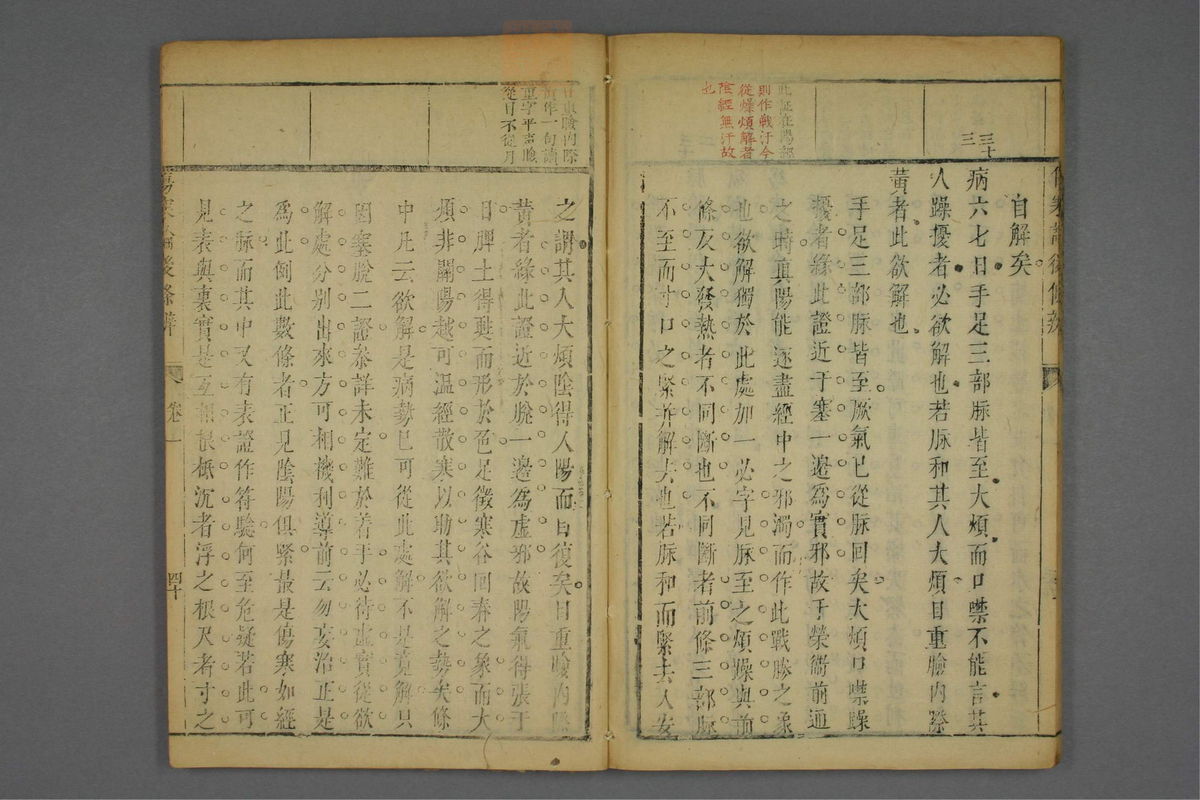 三十三
此证在陽部
則作戰汗今
從燥煩解者
陰經無汗故
也
自解矣
病六七日手足三部脉皆至大煩而口噤不能言其
人躁擾者必欲解也若脉和其人大煩目重臉內際
黃者此欲解也
手足三部脉皆至厥氣已從脉回矣大煩口噤躁
擾者緣此證近于塞一邊為實邪故于榮衞前通
之時真陽能逐盡經中之邪濁而作此戰勝之象
也欲解獨於此處加一必字見脉至之煩躁與前
條反大發熱者不同斷也不同斷者前條三部脉
不至而寸口之緊并解去也若脉和而緊去人安
目重臉內際
黃作一句讀
重字平聲臉
從目不從月
之謂其人大煩陰得入陽而日復矣目重臉內際
黃者緣此證近於脫一邊為虛邪故陽氣得張于
目脾土得甦而形於色足徵寒谷回春之象而大
煩非關陽越可温經散寒以助其欲解之勢矣條
中凡云欲解是病勢已可從此處解不是竟解只
因塞脫二證叅詳未定難於着手必待虛實從欲
解處分別出來方可相機利導前云勿妄治正是
為此倒此數條者正見陰陽俱緊最是傷寒如經
之脉而其中又有表證作符驗何至危疑若此可
見表與裏實是互相根柢沉者浮之根尺者寸之
傷寒論後條辨
卷一
四十